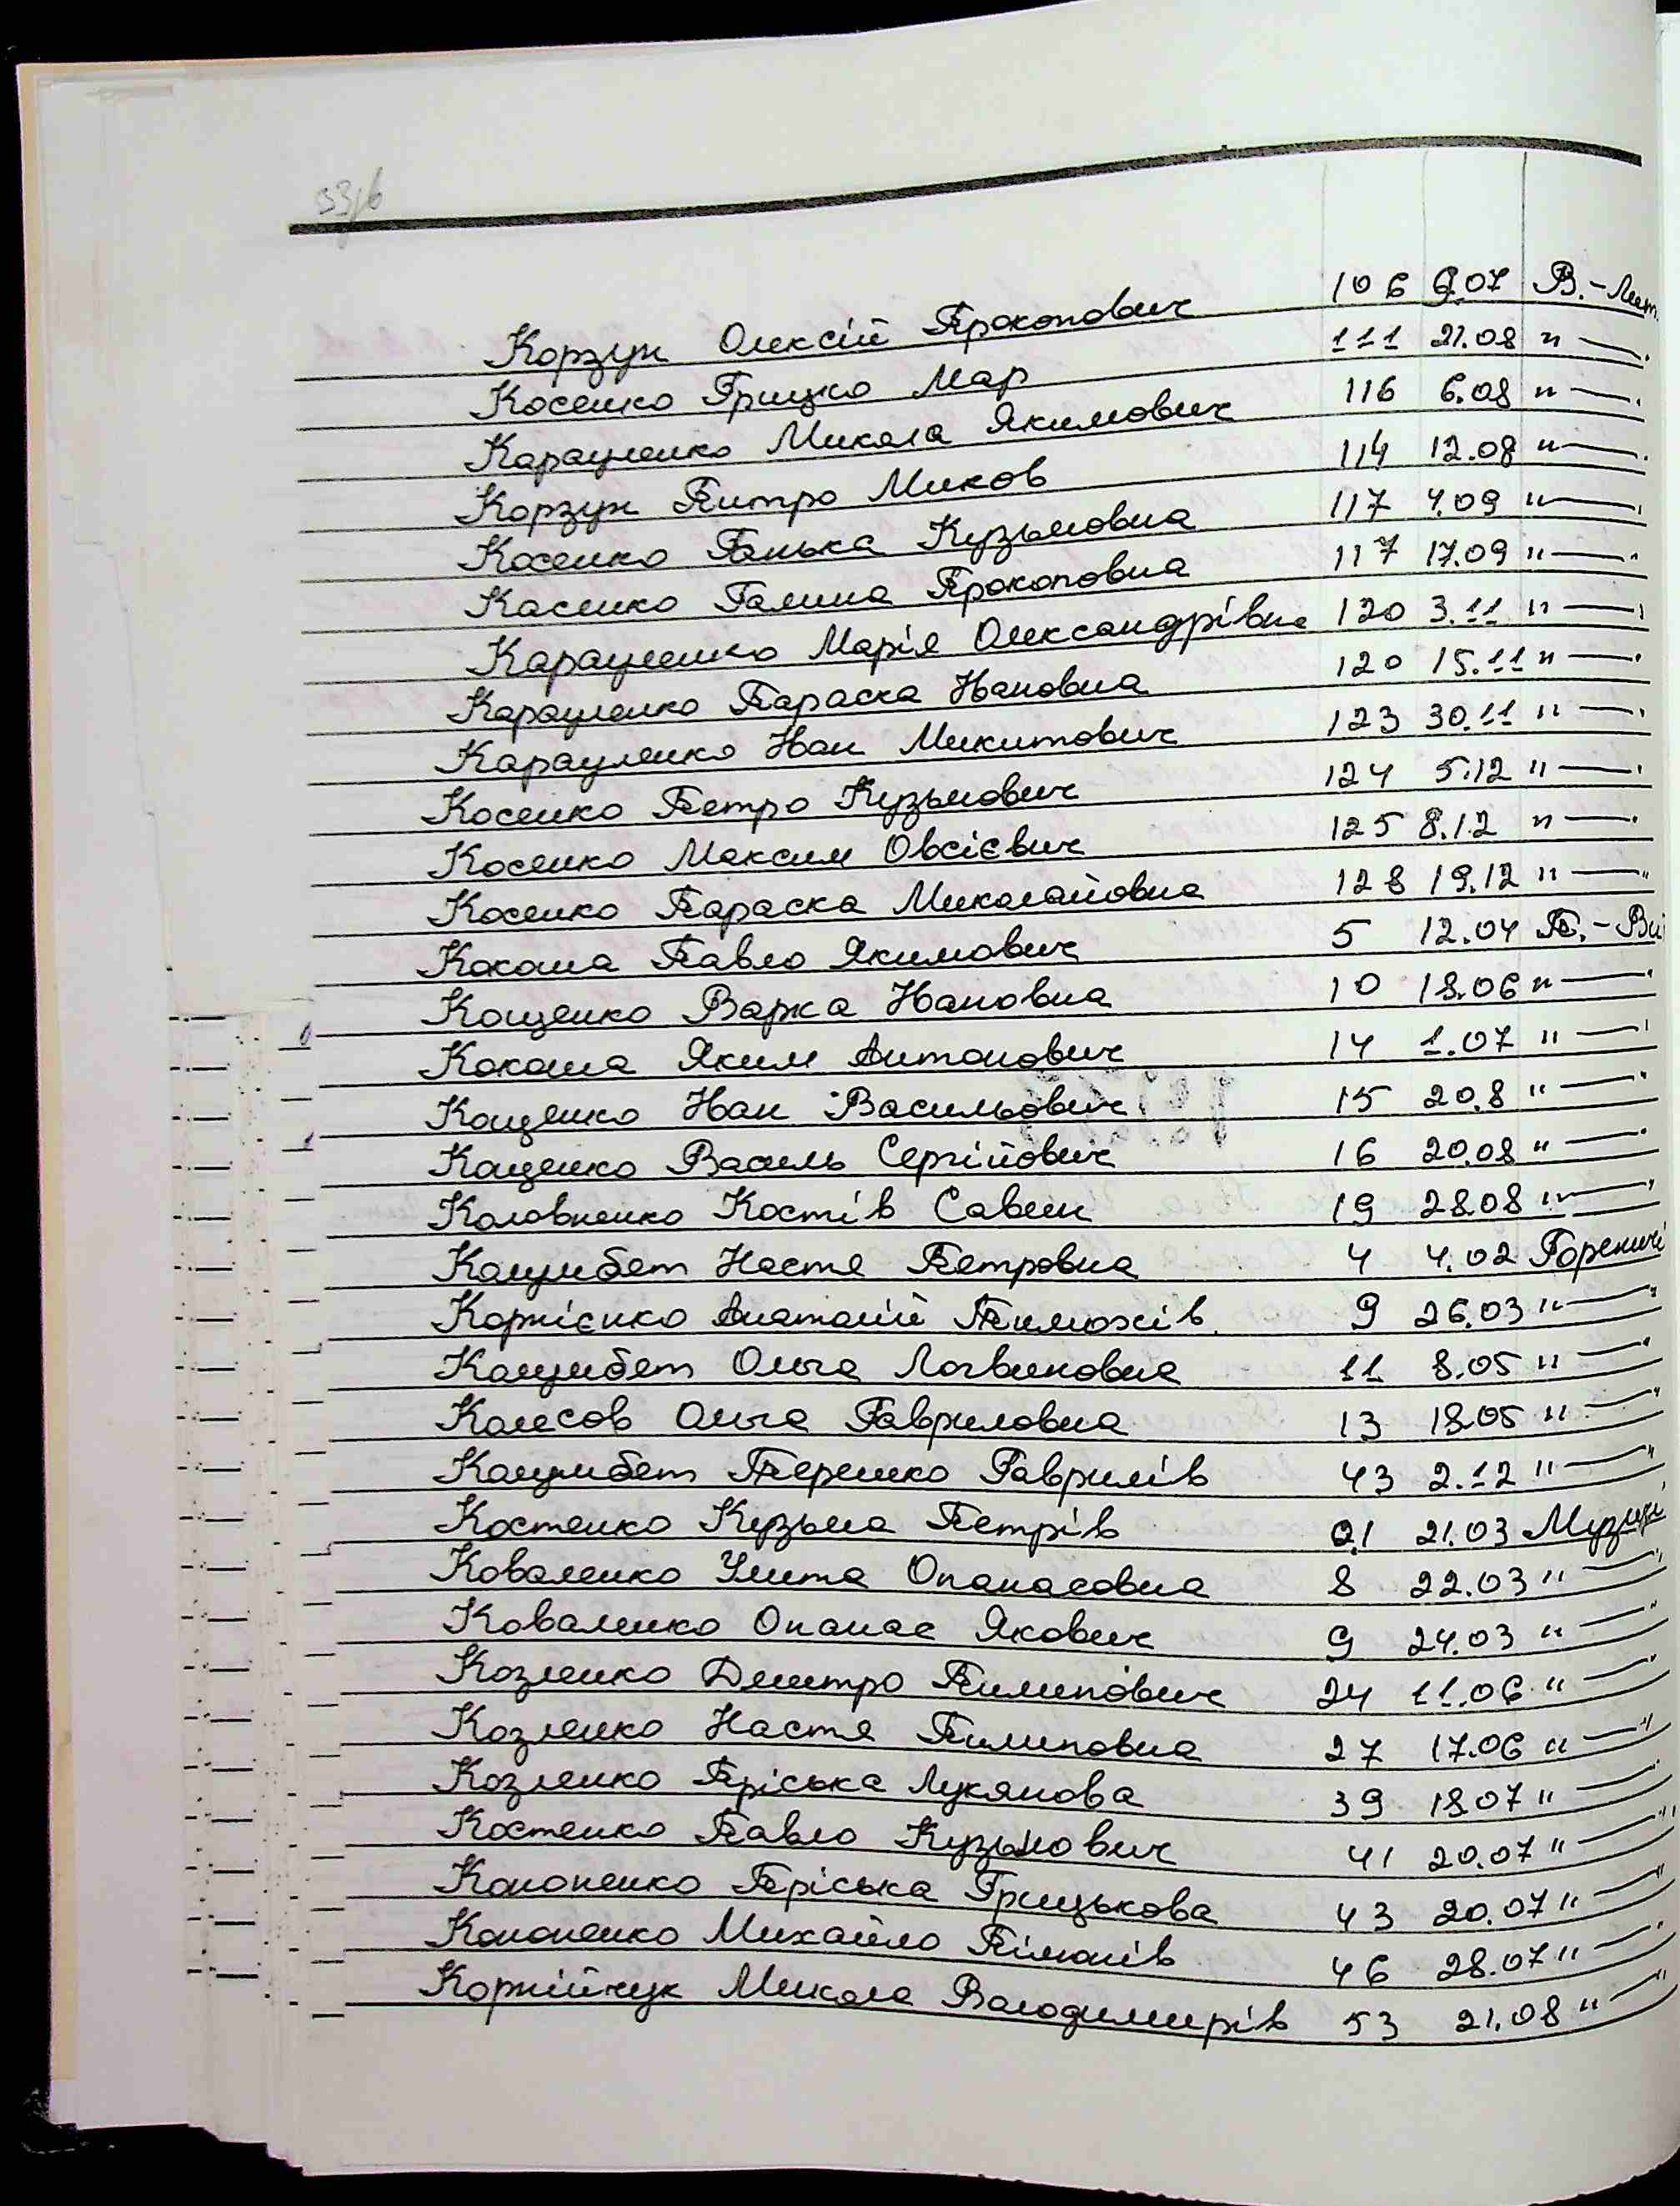 33/6
Корзун Олексій Прокопович 106 6.07 В.-Лит.
Косенко Грицко Мар 111 21.08 "—.
Карауленко Микола Якимович 116 6.08 "—.
Корзун Питро Миков 114 12.08 "—.
Косенко Ганька Кузьмовна 117 4.09 "—.
Касенко Галина Прокоповна 117 17.09 "—.
Карауленко Марія Олександрівна 120 3.11 "—.
Карауленко Параска Ивановна 120 15.11 "—.
Карауленко Иван Микитович 123 30.11 "—.
Косенко Петро Кузьмович 124 5.12 "—.
Косенко Максим Овсієвич 125 8.12 "—.
Косенко Параска Миколайовна 128 19.12 "—"
Кокоша Павло Якимович 5 12.04 П.-
Кощенко Варка Ивановна 10 18.06 "—.
Кокоша Яким Антонович 14 1.07 "—.
Кощенко Иван Васильович 15 20.8 "—"
Кащенко Василь Сергійович 16 20.08 "—.
Коловненко Костів Савен 19 28.08 "—.
Кацумбет Настя Петровна 4 4.02 Гореничі
Корнієнко Анатолій Тимохів 9 26.03 "—"
Кацумбет Ольга Логвиновна 11 8.05 "—"
Колесов Ольга Гавриловна 13 18.05 "—"
Кацумбет Терешко Гаврилів 43 2.12 "—"
Костенко Кузьма Петрів 21 21.03 Музичі
Коваленко Улита Опанасовна 8 22.03 "—"
Коваленко Опанас Якович 9 24.03 "—"
Козленко Дмитро Пилипович 24 11.06 "—"
Козленко Настя Пилиповна 27 17.06 "—"
Козленко Пріська Лукянова 39 18.07 "—"
Костенко Павло Кузьмович 41 20.07 "—"
Кононенко Пріська Грицькова 43 20.07 "—"
Кононенко Михайло Пімонів 46 28.07 "—"
Корнійчук Микола Володимирів 53 21.08 "—"